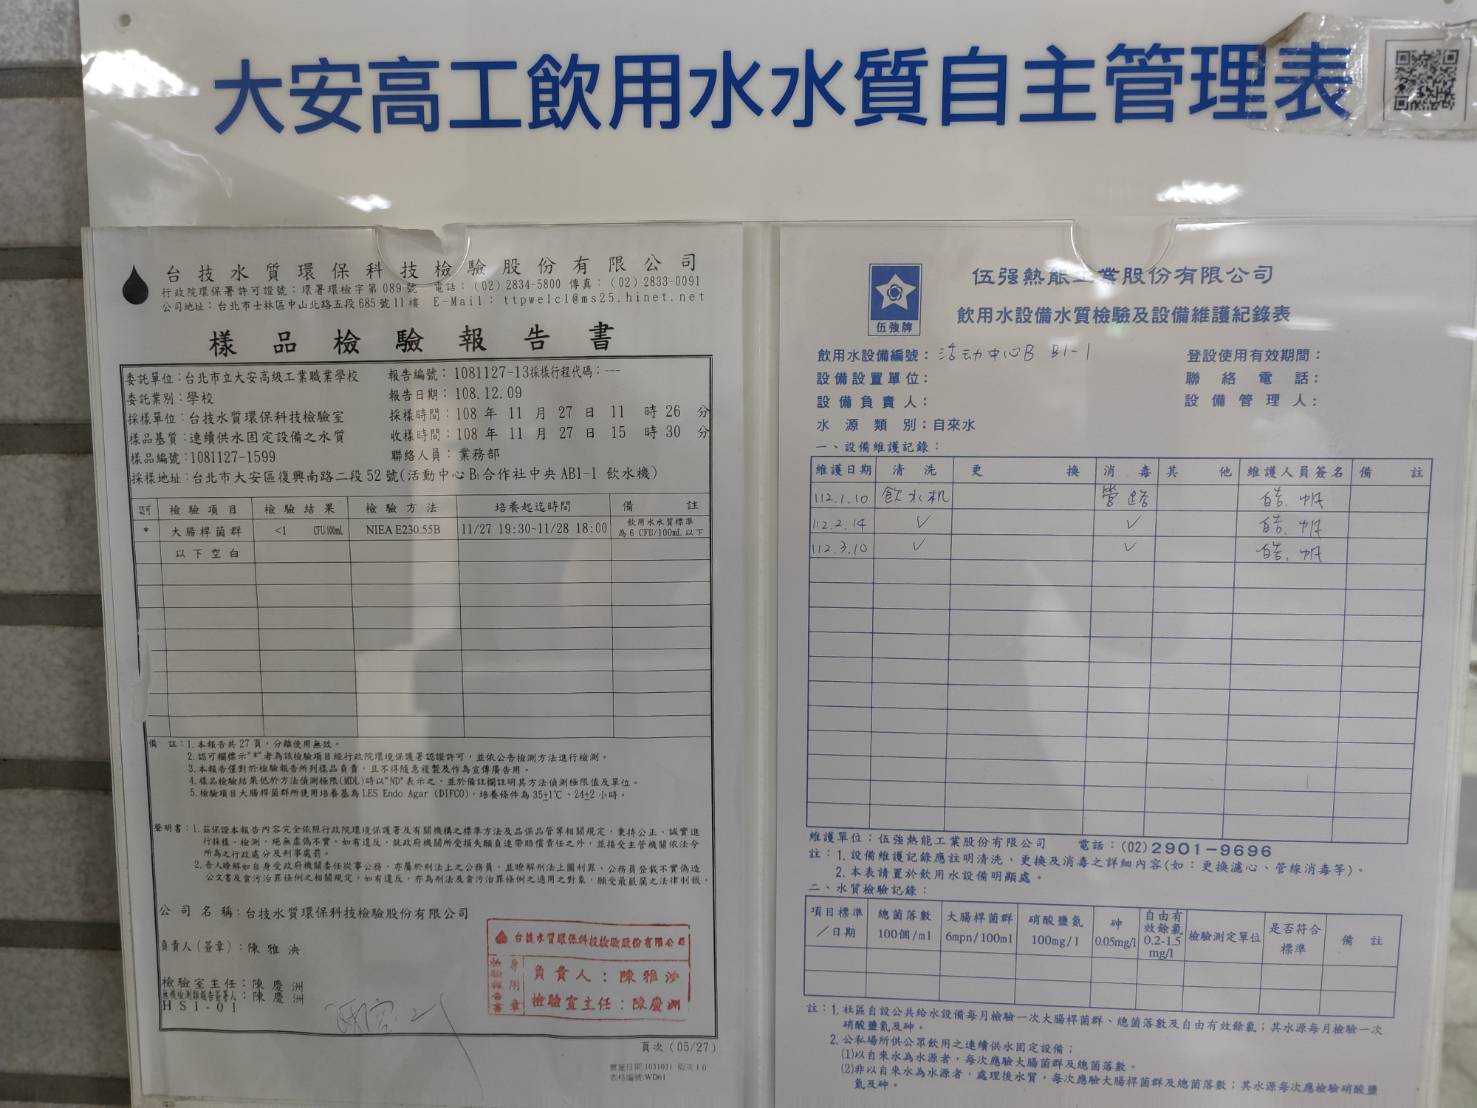 大安高工飲用水水質自主管理表
台技水質環保科技檢驗股份有限公司
行政院環保署許可證號：環署環檢字第089號 電話：(02)2834-5800 傳真：(02)2833-0091
公司地址：台北市士林區中山北路五段685號11樓 E-Mail：ttpwelcl@ms25.hinet.net
樣品檢驗報告書
委託單位：台北市立大安高級工業職業學校 報告編號：1081127-13採樣行程代碼：---
委託業別：學校 報告日期：108.12.09
採樣單位：台技水質環保科技檢驗室 採樣時間：108年11月27日11時26分
樣品基質：連續供水固定設備之水質 收樣時間：108年11月27日15時30分
樣品編號：1081127-1599 聯絡人員：業務部
採樣地址：台北市大安區復興南路二段52號(活動中心B1合作社中央AB1-1飲水機)
認可 檢驗項目 檢驗結果 檢驗方法 培養起迄時間 備註
* 大腸桿菌群 <1 CFU/100mL NIEA E230.55B 11/27 19:30~11/28 18:00 飲用水水質標準
為6 CFU/100mL以下
以下空白
備註：1.本報告共27頁，分離使用無效。
2.認可欄標示"*"者為該檢驗項目經行政院環境保護署認證許可，並依公告檢測方法進行檢測。
3.本報告僅對於檢驗報告所列樣品負責，且不得隨意複製及作為宣傳廣告用。
4.樣品檢驗結果低於方法偵測極限(MDL)時以"ND"表示之，並於備註欄註明其方法偵測極限值及單位。
5.檢驗項目大腸桿菌群所使用培養基為LES Endo Agar (DIFCO)，培養條件為35±1℃、24±2小時。
聲明書：1.茲保證本報告內容完全依照行政院環境保護署及有關機構之標準方法及品保品管等相關規定，秉持公正、誠實進
行採樣、檢測，絕無虛偽不實，如有違反，就政府機關所受損失願負連帶賠償責任之外，並接受主管機關依法令
所為之行政處分及刑事處罰。
2.吾人瞭解如自身受政府機關委任從事公務，亦屬於刑法上之公務員，並瞭解刑法上圖利罪、公務員登載不實偽造
公文書及貪污治罪條例之相關規定，如有違反，亦為刑法及貪污治罪條例之適用之對象，願受最嚴厲之法律制裁。
公司名稱：台技水質環保科技檢驗股份有限公司
負責人(簽章)：陳雅泱
檢驗室主任：陳慶洲
無機檢測類報告簽署人：陳慶洲
HSI-01
台技水質環保科技檢驗股份有限公司
負責人：陳雅泱
檢驗室主任：陳慶洲
檢驗報告書
專用章
頁次(05/27)
伍強牌
伍强熱能工業股份有限公司
飲用水設備水質檢驗及設備維護紀錄表
飲用水設備編號：活动中心B B1-1 登設使用有效期間：
設備設置單位： 聯絡電話：
設備負責人： 設備管理人：
水源類別：自來水
一、設備維護記錄：
維護日期 清洗 更換 消毒 其他 維護人員簽名 備註
112.1.10 飲水机 管路 皓.帆
112.2.14 ✓ ✓ 皓.帆
112.3.10 ✓ ✓ 皓.帆
維護單位：伍強熱能工業股份有限公司 電話：(02)2901-9696
註：1.設備維護記錄應註明清洗、更換及消毒之詳細內容(如：更換濾心、管線消毒等)。
2.本表請置於飲用水設備明顯處。
二、水質檢驗記錄：
項目標準/日期 總菌落數100個/ml 大腸桿菌群6mpn/100ml 硝酸鹽氮100mg/l 砷0.05mg/l 自由有效餘氯0.2-1.5mg/l 檢驗測定單位 是否符合標準 備註
註：1.社區自設公共給水設備每月檢驗一次大腸桿菌群、總菌落數及自由有效餘氯；其水源每月檢驗一次
硝酸鹽氮及砷。
2.公私場所供公眾飲用之連續供水固定設備；
(1)以自來水為水源者，每次應驗大腸菌群及總菌落數。
(2)非以自來水為水源者，處理後水質，每次應驗大腸桿菌群及總菌落數；其水源每次應檢驗硝酸鹽
氮及砷。